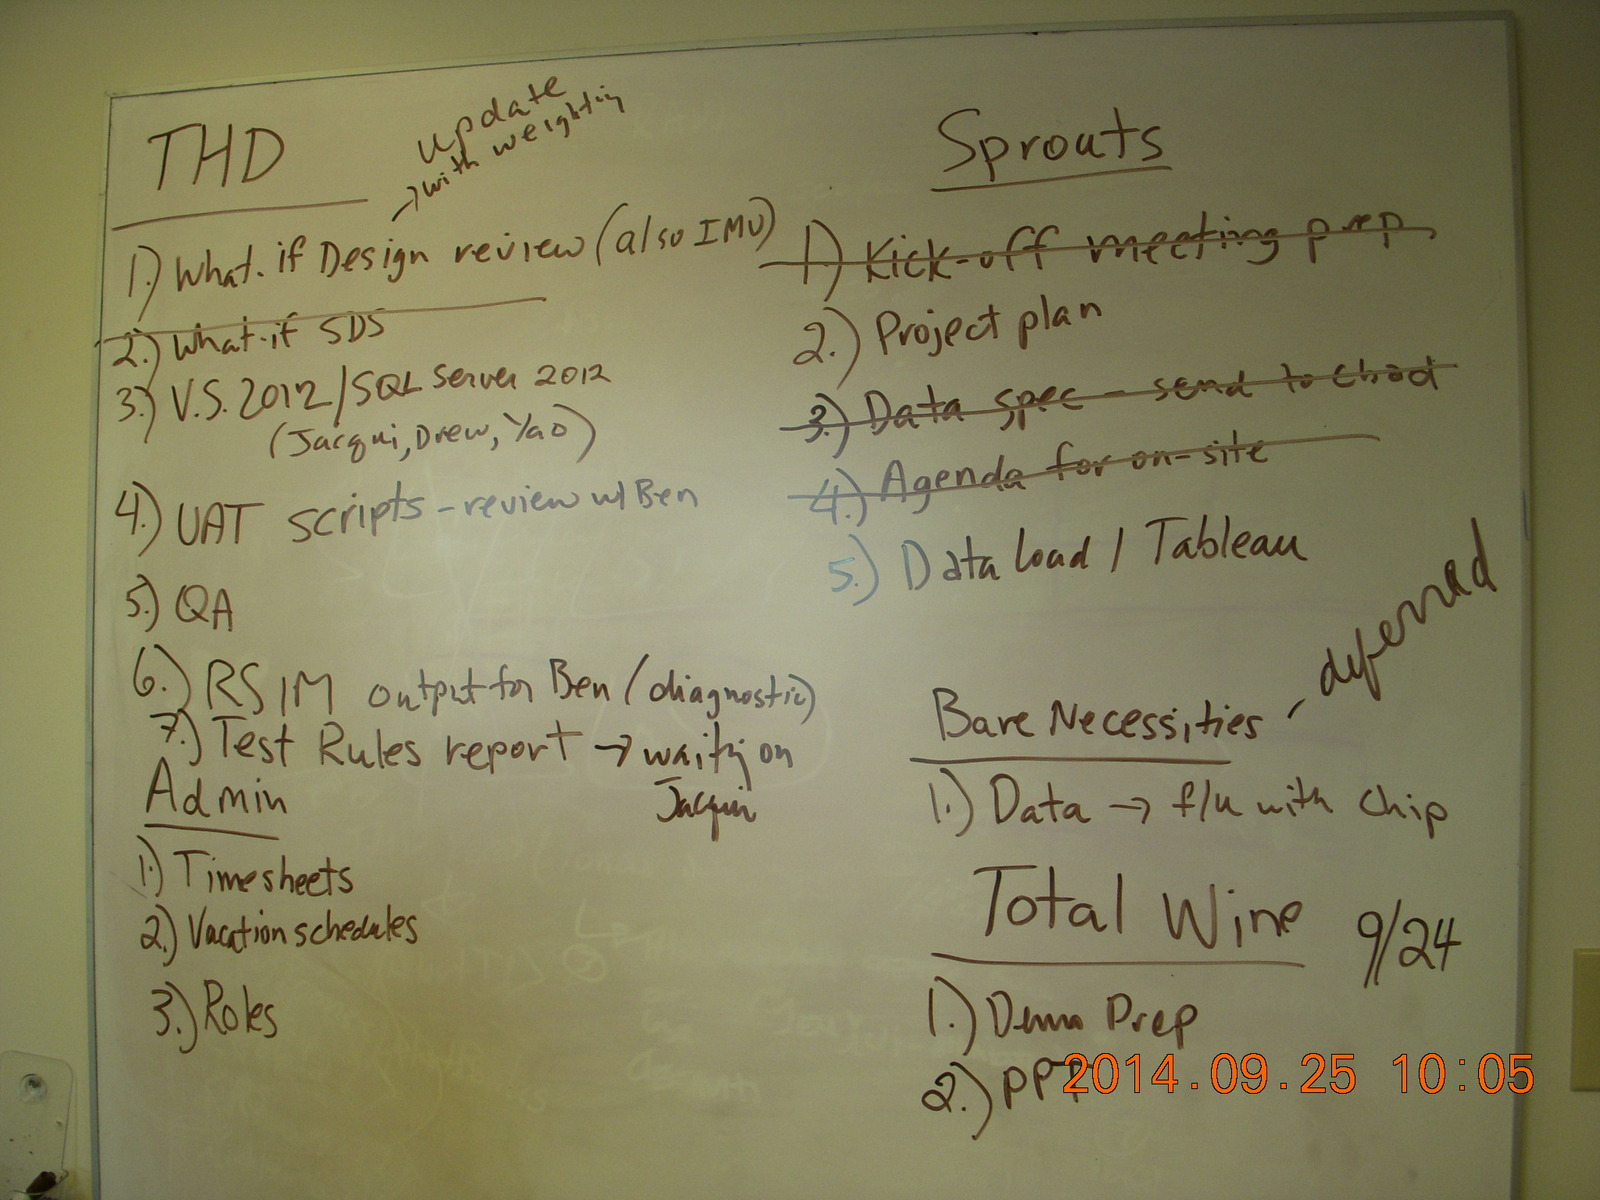 THD
update
→ with weighting
1.) What-if Design review (also IMU)
2.) What-if SDS
3.) V.S. 2012 / SQL Server 2012
(Jacqui, Drew, Yao)
4.) UAT scripts - review w/ Ben
5.) QA
6.) RSIM output for Ben (diagnostic)
7.) Test Rules report → waiting on
Jacqui
Admin
1.) Timesheets
2.) Vacation schedules
3.) Roles
Sprouts
1.) Kick-off meeting prep
2.) Project plan
3.) Data spec - send to Chad
4.) Agenda for on-site
5.) Data load / Tableau
Bare Necessities - deferred
1.) Data → f/u with Chip
Total Wine 9/24
1.) Demo Prep
2.) PPT
2014.09.25 10:05